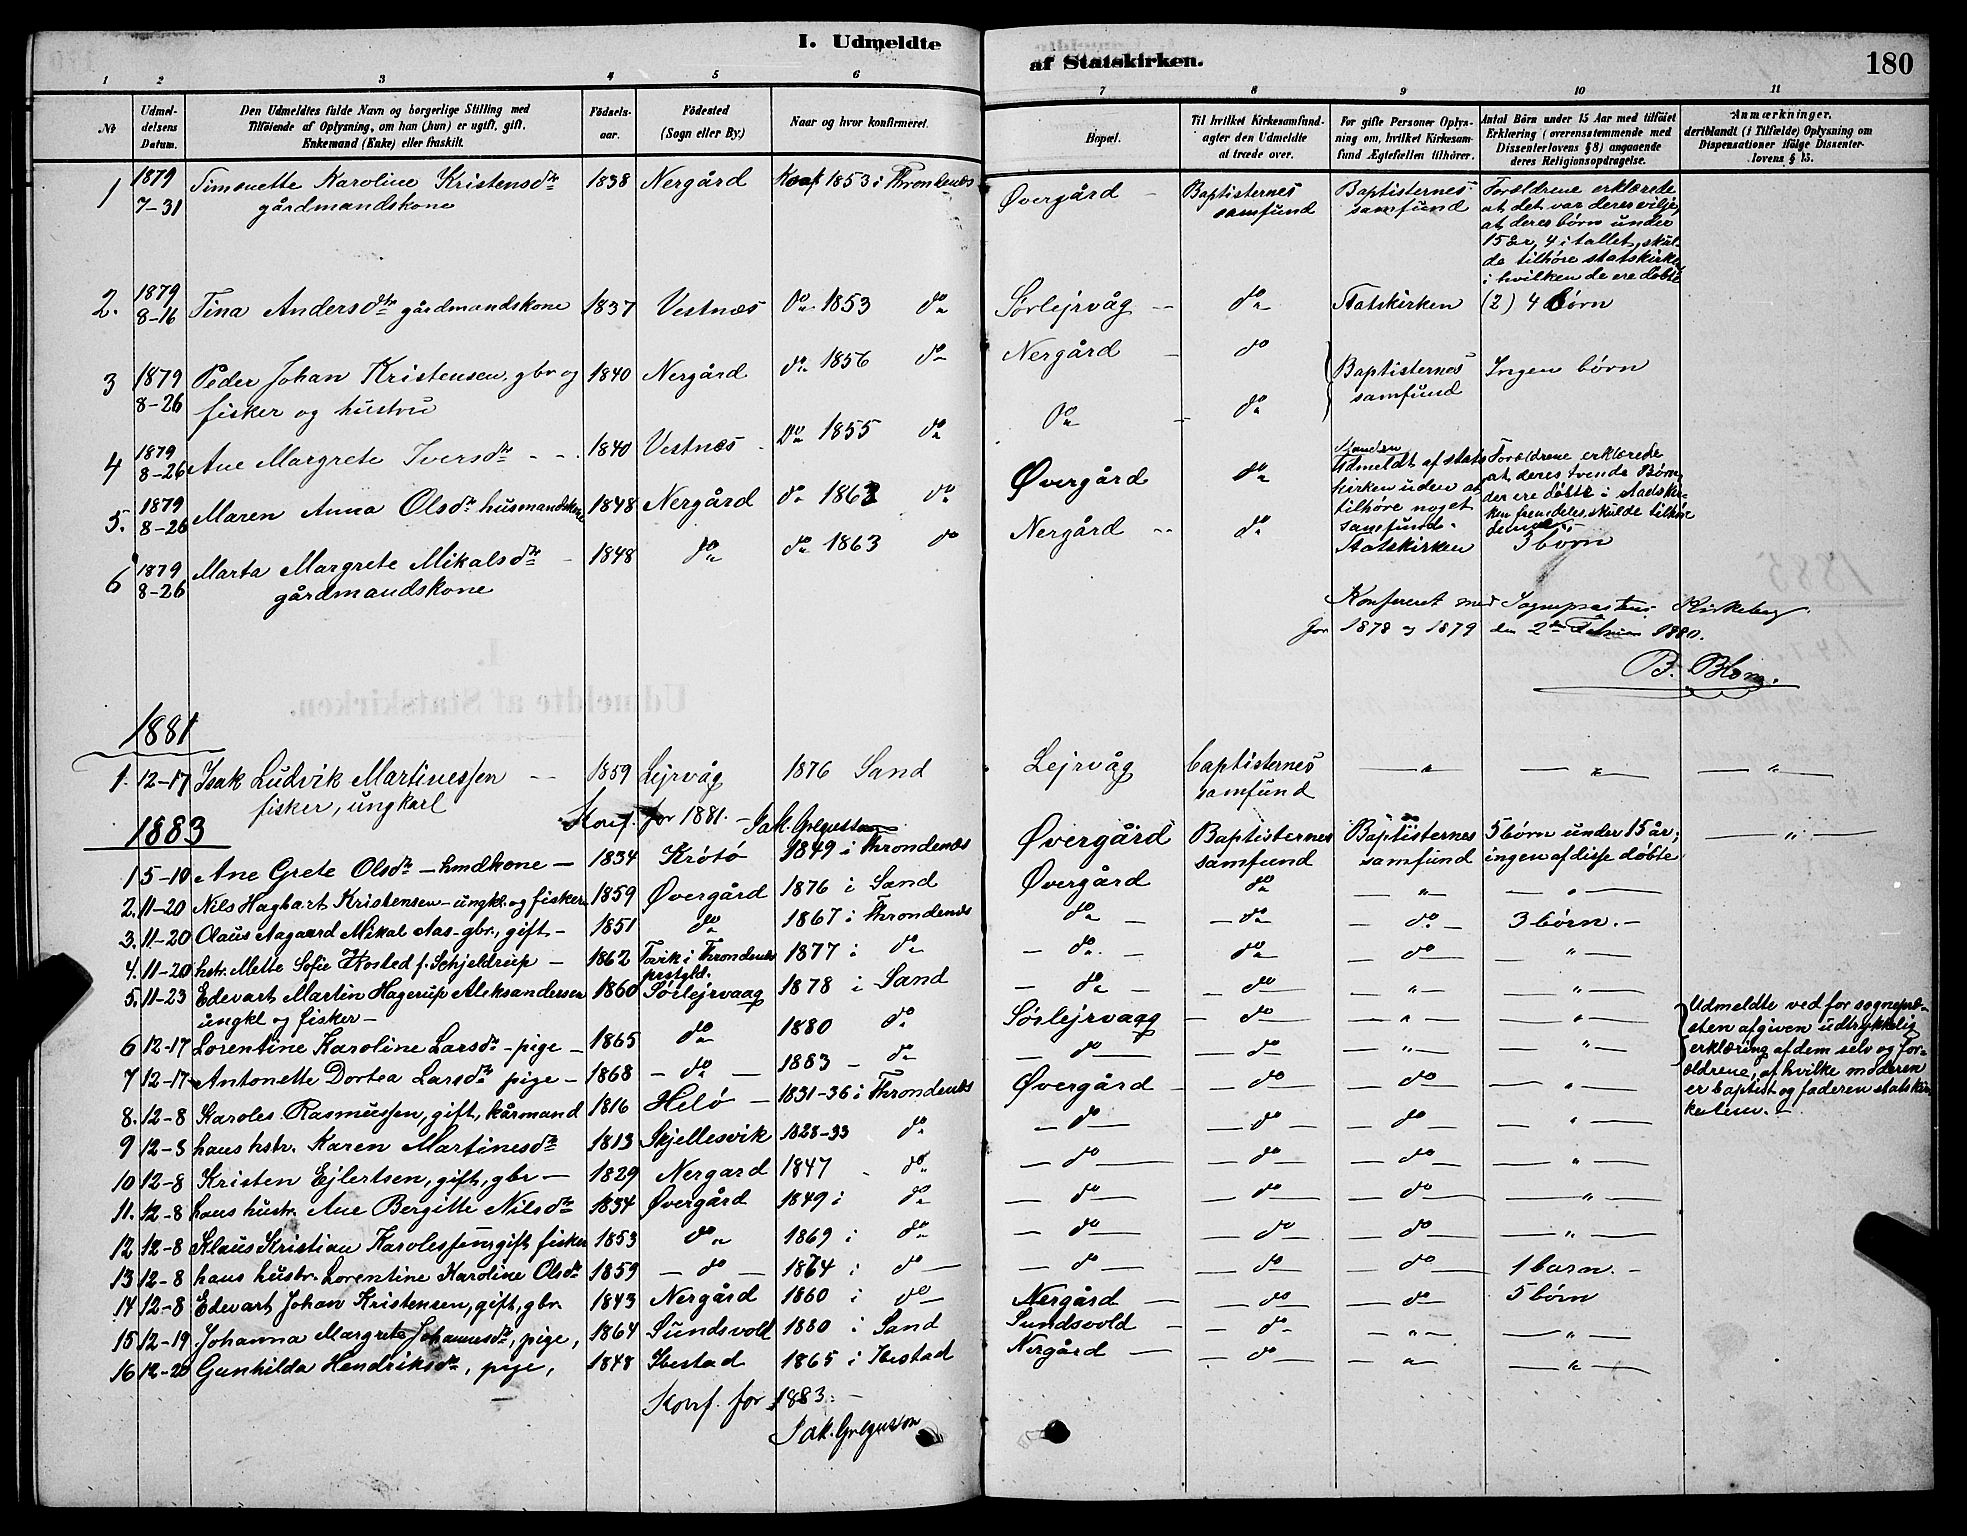 I. Udmeldte
af Statskirken.
180
1 2 3 4 5 6 7 8 9 10 11
№
Udmel-
delsens
Datum.
Den Udmeldtes fulde Navn og borgerlige Stilling med
Tilføiende af Oplysning, om han (hun) er ugift, gift,
Enkemand (Enke) eller fraskilt.
Fødsels-
aar.
Fødested
(Sogn eller By.)
Naar og hvor konfirmeret.
Bopæl.
Til hvilket Kirkesamfund
agter den Udmeldte
at træde over.
For gifte Personer Oplys-
ning om, hvilket Kirkesam-
fund Ægtefællen tilhører.
Antal Børn under 15 Aar med tilføiet
Erklæring (overensstemmende med
Dissenterlovens § 8) angaaende
deres Religionsopdragelse.
Anmærkninger,
deriblandt (i Tilfælde) Oplysning om
Dispensationer ifølge Dissenter-
lovens § 15.
1 1879 7-31 Simonette Karoline Kristensdtr 1838 Nergård Konf 1853 i Throndenæs Øvergård - Baptisternes Baptisternes Forældrene erklærede
gårdmandskone samfund samfund at det var deres vilje,
at deres børn under
15 år, 4 i tallet, skul-
de tilhøre statskirken
i hvilken de ere døbte
2. 1879 8-16 Tina Andersdtr gårdmandskone 1837 Vestnæs do 1853 do Sørlejrvåg - do Statskirken (2) 4 børn
3 1879 8-26 Peder Johan Kristensen, gbr og 1840 Nergård do 1856 do Nergård - do Baptisternes Ingen børn
fisker og hustru samfund
4 1879 8-26 Ane Margrete Iversdtr - - 1840 Vestnæs - Do 1855 do Do - do
5. 1879 8-26 Maren Anna Olsdtr husmandskone 1848 Nergård do 1862 do Øvergård do Manden
Udmeldt af stats
kirken uden at
tilhøre noget
samfund.
Forældrene erklærede
at deres tvende Børn,
der ere døbte i statskir-
ken fremdeles skulde tilhøre
denne.
6 1879 8-26 Marta Margrete Mikalsdtr - 1848 do do 1863 do Nergård - - do Statskirken 3 børn
gårdmandskone
Konfereret med Sognepræstens Kirkebog
for 1878 og 1879 den 2den Februar 1880.
B. Blom.
1881
1. 12-17 Isak Ludvik Martinessen - - 1859 Lejrvåg 1876 Sand Lejrvåg baptisternes
fisker, ungkarl samfund
Konf. for 1881. - Jak. Gregusson
1883
1 5-10 Ane Grete Olsdtr - hmdkone - 1834 Krøtø 1849 i Throndenæs Øvergård Baptisternes Baptisternes 5 børn under 15 år;
samfund samfund ingen af disse døbte
2. 11-20 Nils Hagbart Kristensen - ungkl. og fisker 1859 Øvergård 1876 i Sand Øvergård do " "
3. 11-20 Olaus Aagaard Mikal Aas - gbr, gift - 1851 do 1867 i Throndenæs do - do do 3 børn. -
4. 11-20 hstr. Mette Sofie Hosted f. Schjeldrup - 1862 Tovik i Throndenæs 1877 i do - do - do do "
prstgld.
5. 11-23 Edevart Martin Hagerup Aleksandersen 1860 Sørlejrvaag 1878 i Sand - do - do " "
ungkl og fisker -
6 12-17 Lorentine Karoline Larsdtr - pige - 1865 do 1880 do Sørlejrvaag - do " "
7 12-17 Antonette Dortea Larsdtr pige - 1868 - do - 1883 - do - do - do " "
Udmeldte ved for sognepræ-
sten afgiven udtrykkelig
erklæring af dem selv og for-
ældrene, af hvilke moderen
er baptist og faderen statskir
ketem. -
8. 12-8 Karoles Rasmussen, gift, kårmand 1816 Helø - 1831-36 i Throndenæs Øvergård - do do "
9 12-8 hans hstr. Karen Martinesdtr 1813 Skjellesvik 1828-33 do - do - do do "
10 12-8 Kristen Ejlertsen, gift, gbr - 1829 Nergard 1847 - do - do - do do "
11. 12-8 hans hustr. Ane Bergitte Nilsdtr 1834 Øvergård 1849 i do - do - do do "
12 12-8 Klaus Kristian Karolessen gift fisker 1853 do 1869 i do - do - do do "
13 12-8 hans hustr. Lorentine Karoline Olsdtr 1859 - do - 1874 i do - do - do do 1 barn. -
14 12-8 Edevart Johan Kristensen, gift, gbr. 1843 Nergård 1860 i do Nergård - do do 5 børn
15 12-19 Johanna Margrete Johannesdtr, pige, 1864 Sundsvold 1880 i Sand Sundsvold - do " "
16 12-20 Gunhilda Hendriksdtr, pige, 1848 Ibestad 1865 i Ibestad Nergård - do " "
Konf. for 1883. -
Jak. Gregusson